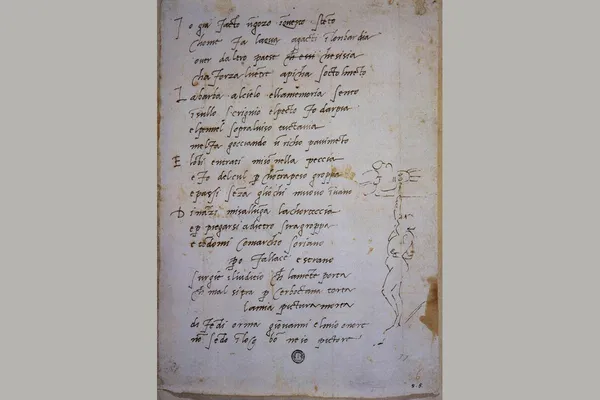 I o gia facto ngozo i questo steto
chome fa laqua agacti i lonbardia
over daltro paese che essi chesisia
cha forza luetre apicha socto lmeto
L abarba alcielo ellamemoria sento
i sullo scrignio elpecto fo darpia
elpennel sopraluiso tuctauia
melfa gocciando u richo pauimeto
E lobi entrati miso nella peccia
e fo delcul p chotrapeso groppa
e passi seza gliochi muouo i uano
D inazi misalluga lachorteccia
e p piegarsi adietro siragroppa
e tedomi comarcho soriano
po fallace e strano
surgie iliudicio che lamete porta
che mal sitra p cerboctana torta
lamia pictura morta
difedi orma giouanni elmio onore
no sedo ilog bo ne io pictore